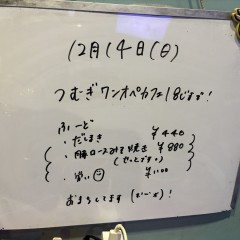 12月14日(日)
つむぎワンオペカフェ18じまで!
ふーど
・だしまき ¥440
・豚ロースみそ焼き ¥880
(セットです。)
・笑い ¥1100
おまちしてます( )!